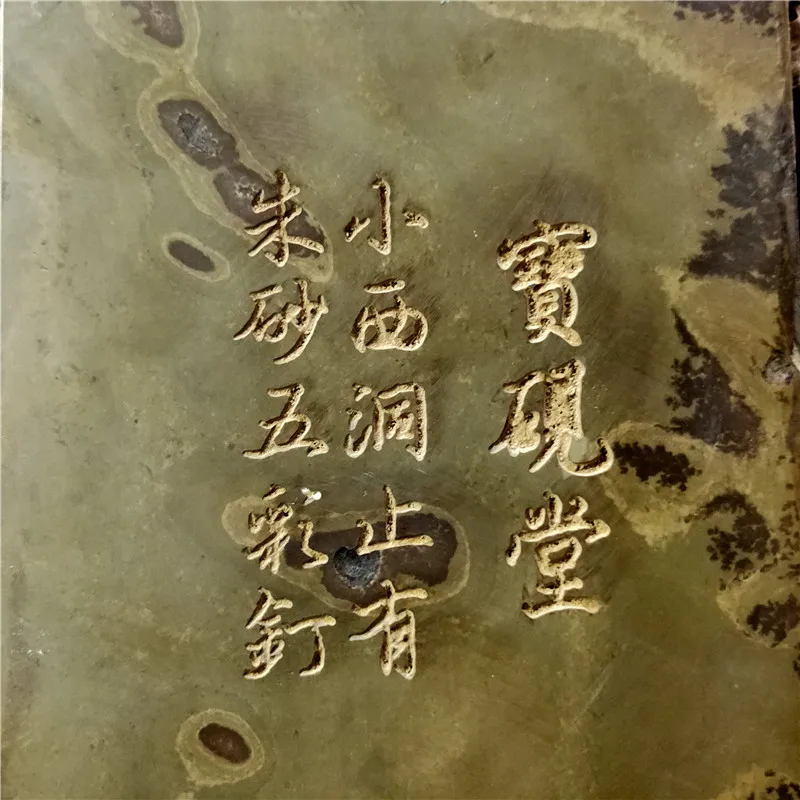 寶硯堂
小西洞止有
朱砂五彩釘